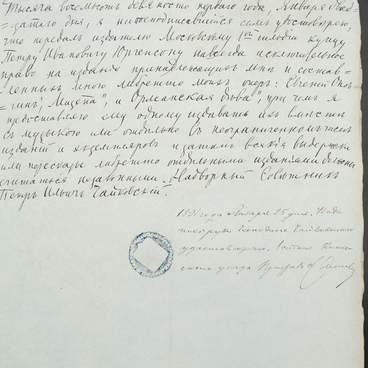 Тысяча восемьсотъ девяносто перваго года, Января двад-
цатаго дня, я нижеподписавшійся симъ удостовѣряю
что передалъ издателю Московскому 1ой гильдіи купцу
Петру Ивановичу Юргенсону навсегда исключительное
право на изданіе принадлежащихъ мнѣ и состав-
ленныхъ мною либретто моихъ оперъ: Евгеній Онѣ-
гинъ, Мазепа" и "Орлеанская дѣва", при чемъ я
предоставляю ему одному издавать ихъ вмѣстѣ
съ музыкою или отдѣльно въ неограниченномъ числѣ
изданій и экземпляровъ и затѣмъ всякія выдержки
или пересказы либретто отдѣльными изданіями должны
считаться незаконными. Надворный Совѣтникъ
Петръ Ильичъ Чайковскій.
1891 года Января 25 дня.
подпись Господина Чайковскаго
удостовѣряю,
уѣзда